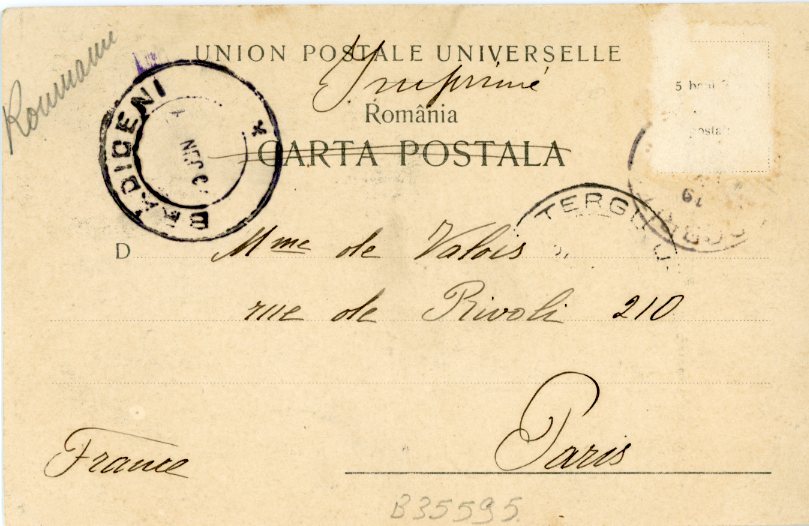 Roumanie
UNION POSTALE UNIVERSELLE
Imprimé
România
CARTA POSTALA
5 bani
postal
BRADICENI
TERGU J
D Mme de Valois
rue de Rivoli 210
Paris
France
B35595